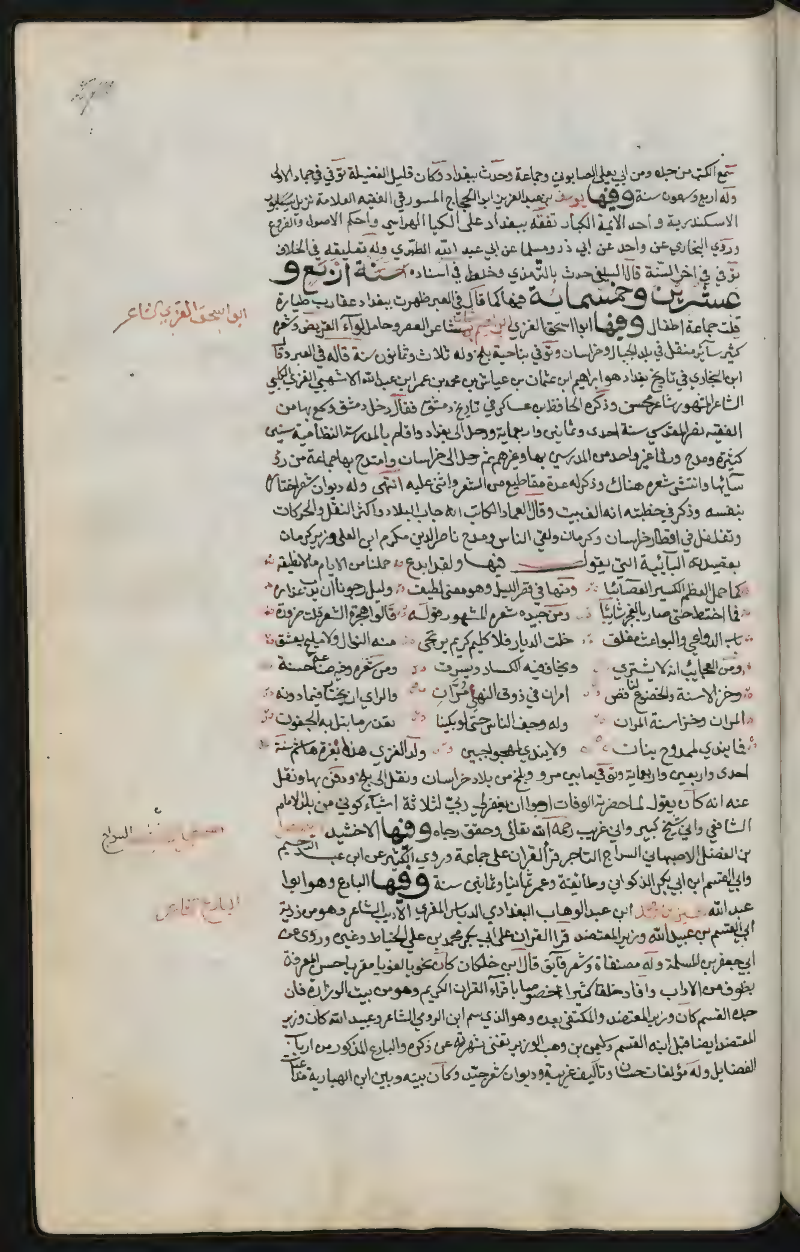 سمع الكثير من جده ومن ابي يعلى الصابوني وجماعة وحدث ببغداد وكان قليل الفضيلة توفي في جماد الاولى
وله اربع وسبعون سنة وفيها يوسف بن عبد العزيز ابو الحجاج الميورقي الفقيه العلامة نزيل
الاسكندرية واحد الايمة الكبار تفقه ببغداد على الكيا الهراسي واحكم الاصول والفروع
وروى البخاري عن واحد عن ابي ذر ومسلما عن ابي عبد الله الطبري وله تعليقه في الخلاف
توفي في اخر السنة قال السلفي حدث بالترمذي وخلط في اسناده سنة اربع و
عشرين وخمسماية فيها كما قال في العبر ظهرت ببغداد عقارب طيارة
قتلت جماعة اطفال وفيها ابو اسحق الغزي ابراهيم شاعر العصر وحامل لواء القريض وشعره
كثير ساير متنقل في بلد الجبال وخراسان وتوفي بناحية بلخ وله ثلاث وثمانون سنة قاله في العبر وقال
ابن النجاري في تاريخ بغداد هو ابراهيم ابن عثمان بن عياش بن محمد بن عمر ابن عبد الله الاشهبي الغزي الكلبي
الشاعر المشهور شاعر محسن وذكره الحافظ بن عساكر في تاريخ دمشق فقال دخل دمشق وسمع بها من
الفقيه نصر المقدسي سنة احدى وثمانين واربعماية ورحل الى بغداد واقام بالمدرسة النظامية سنين
كثيرة ومدح ورثا غير واحد من المدرسين بها وغيرهم ثم رحل الى خراسان وامتدح بها جماعة من رؤ
سائها وانتشر شعره هناك وذكر له عدة مقاطيع من الشعر واثنى عليه انتهى وله ديوان شعر اختاره
بنفسه وذكر في خطبته انه الف بيت وقال العماد الكاتب انه جاب البلاد واكثر النقل والحركات
وتغلغل في اقطار خراسان وكرمان ولقي الناس ومدح ناصر الدين مكرم ابن العلي وزير كرمان
بقصيدته البائية التي يقول فيها ولقد ابدع حملنا من الايام مالا نطيقه
كما حمل العظم الكسير العصائبا ومنها في قصر الليل وهو معنى لطيف وليل رجونا ان يدب عذاره
فما اختط حتى صار بالفجر شائبا ومن جيده شعره المشهور قوله قالوا هجرت الشعر قلت ضرورة
باب الدواعي والبواعث مغلق خلت الديار فلا كريم يرتجى منه النوال ولا مليح يعشق
ومن العجائب انه لا يشترى ويخان فيه مع الكساد ويسرق ومن شعره وفيه صناعة حسنة
وخز الاسنة والخضوع لناقص امران في ذوق النهى مُرَّانِ والراي ان يختار فيما دونه
المران وخز اسنة المران وله وجف الناس حتى لو بكينا تعذر ما تبل به الجفون
فما يندي لممدوح بنات ولا يندى لمهجو جبين ولد الغزي هذا بغزة هاشم سنة
احدى واربعين واربعماية وتوفي ما بين مرو وبلخ من بلاد خراسان ونقل الى بلخ ودفن بها ونقل
عنه انه كان يقول لما حضرته الوفات ارجو ان يغفر لي ربي لثلاثة اشياء كوني من بلد الامام
الشافعي واني شيخ كبير واني غريب رحمه الله تعالى وحقق رجاه وفيها الاخشيد
بن الفضل الاصبهاني السراج التاجر قرأ القران على جماعة وروى الكثير عن ابن عبد الرحيم
وابي القسم ابن ابي بكر الذكواني وطائفة وعمر ثمانيا وثمانين سنة وفيها البارع وهو ابوا
عبد الله ابن عبد الوهاب البغدادي الدباس المقري الاديب الشاعر وهو من ذرية
ابي القسم بن عبيد الله وزير المعتضد قرأ القران على ابي بكر محمد بن علي الخياط وغيره وروى عن
ابي جعفر بن المسلمة وله مصنفات وشعر فايق قال ابن خلكان كان نحويا لغويا مقريا حسن المعرفة
بظوف من الاداب وافاد خلقا كثيرا خصوصا باقرآء القرات الكريم وهو من بيت الوزارة فان
جده القسم كان وزير المعتضد والمكتفي بعده وهو الذي سم ابن الرومي الشاعر وعبيد الله كان وزير
المعتضد ايضا قبل ابنه القسم وسليمن بن وهب الوزير تغني شهرته عن ذكره والبارع المذكور من ارباب
الفضايل وله مؤلفات حسان وتآليف غريبة وديوان شعر جيد وكان بينه وبين ابن الهبارية
ابو اسحق الغزي الشاعر
السراج
البارع